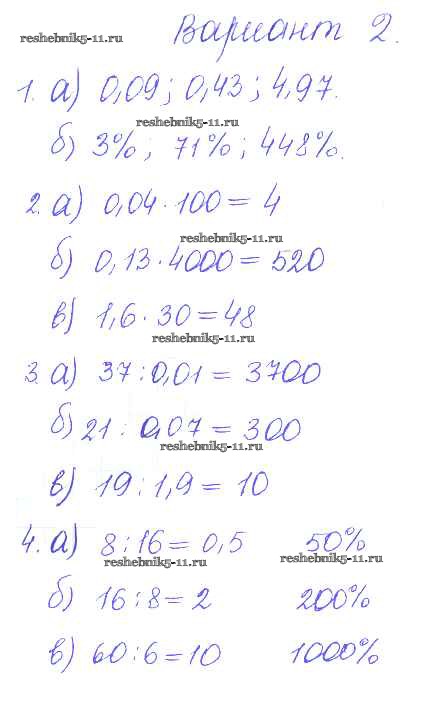 Вариант 2.
reshebnik5-11.ru
1. а) 0,09; 0,43; 4,97.
reshebnik5-11.ru
б) 3%; 71%; 448%.
2. а) 0,04·100=4
reshebnik5-11.ru
б) 0,13·4000=520
в) 1,6·30=48
reshebnik5-11.ru
3. а) 37:0,01=3700
б) 21:0,07=300
reshebnik5-11.ru
в) 19:1,9=10
4. а) 8:16=0,5 50%
reshebnik5-11.ru reshebnik5-11.ru
б) 16:8=2 200%
в) 60:6=10 1000%